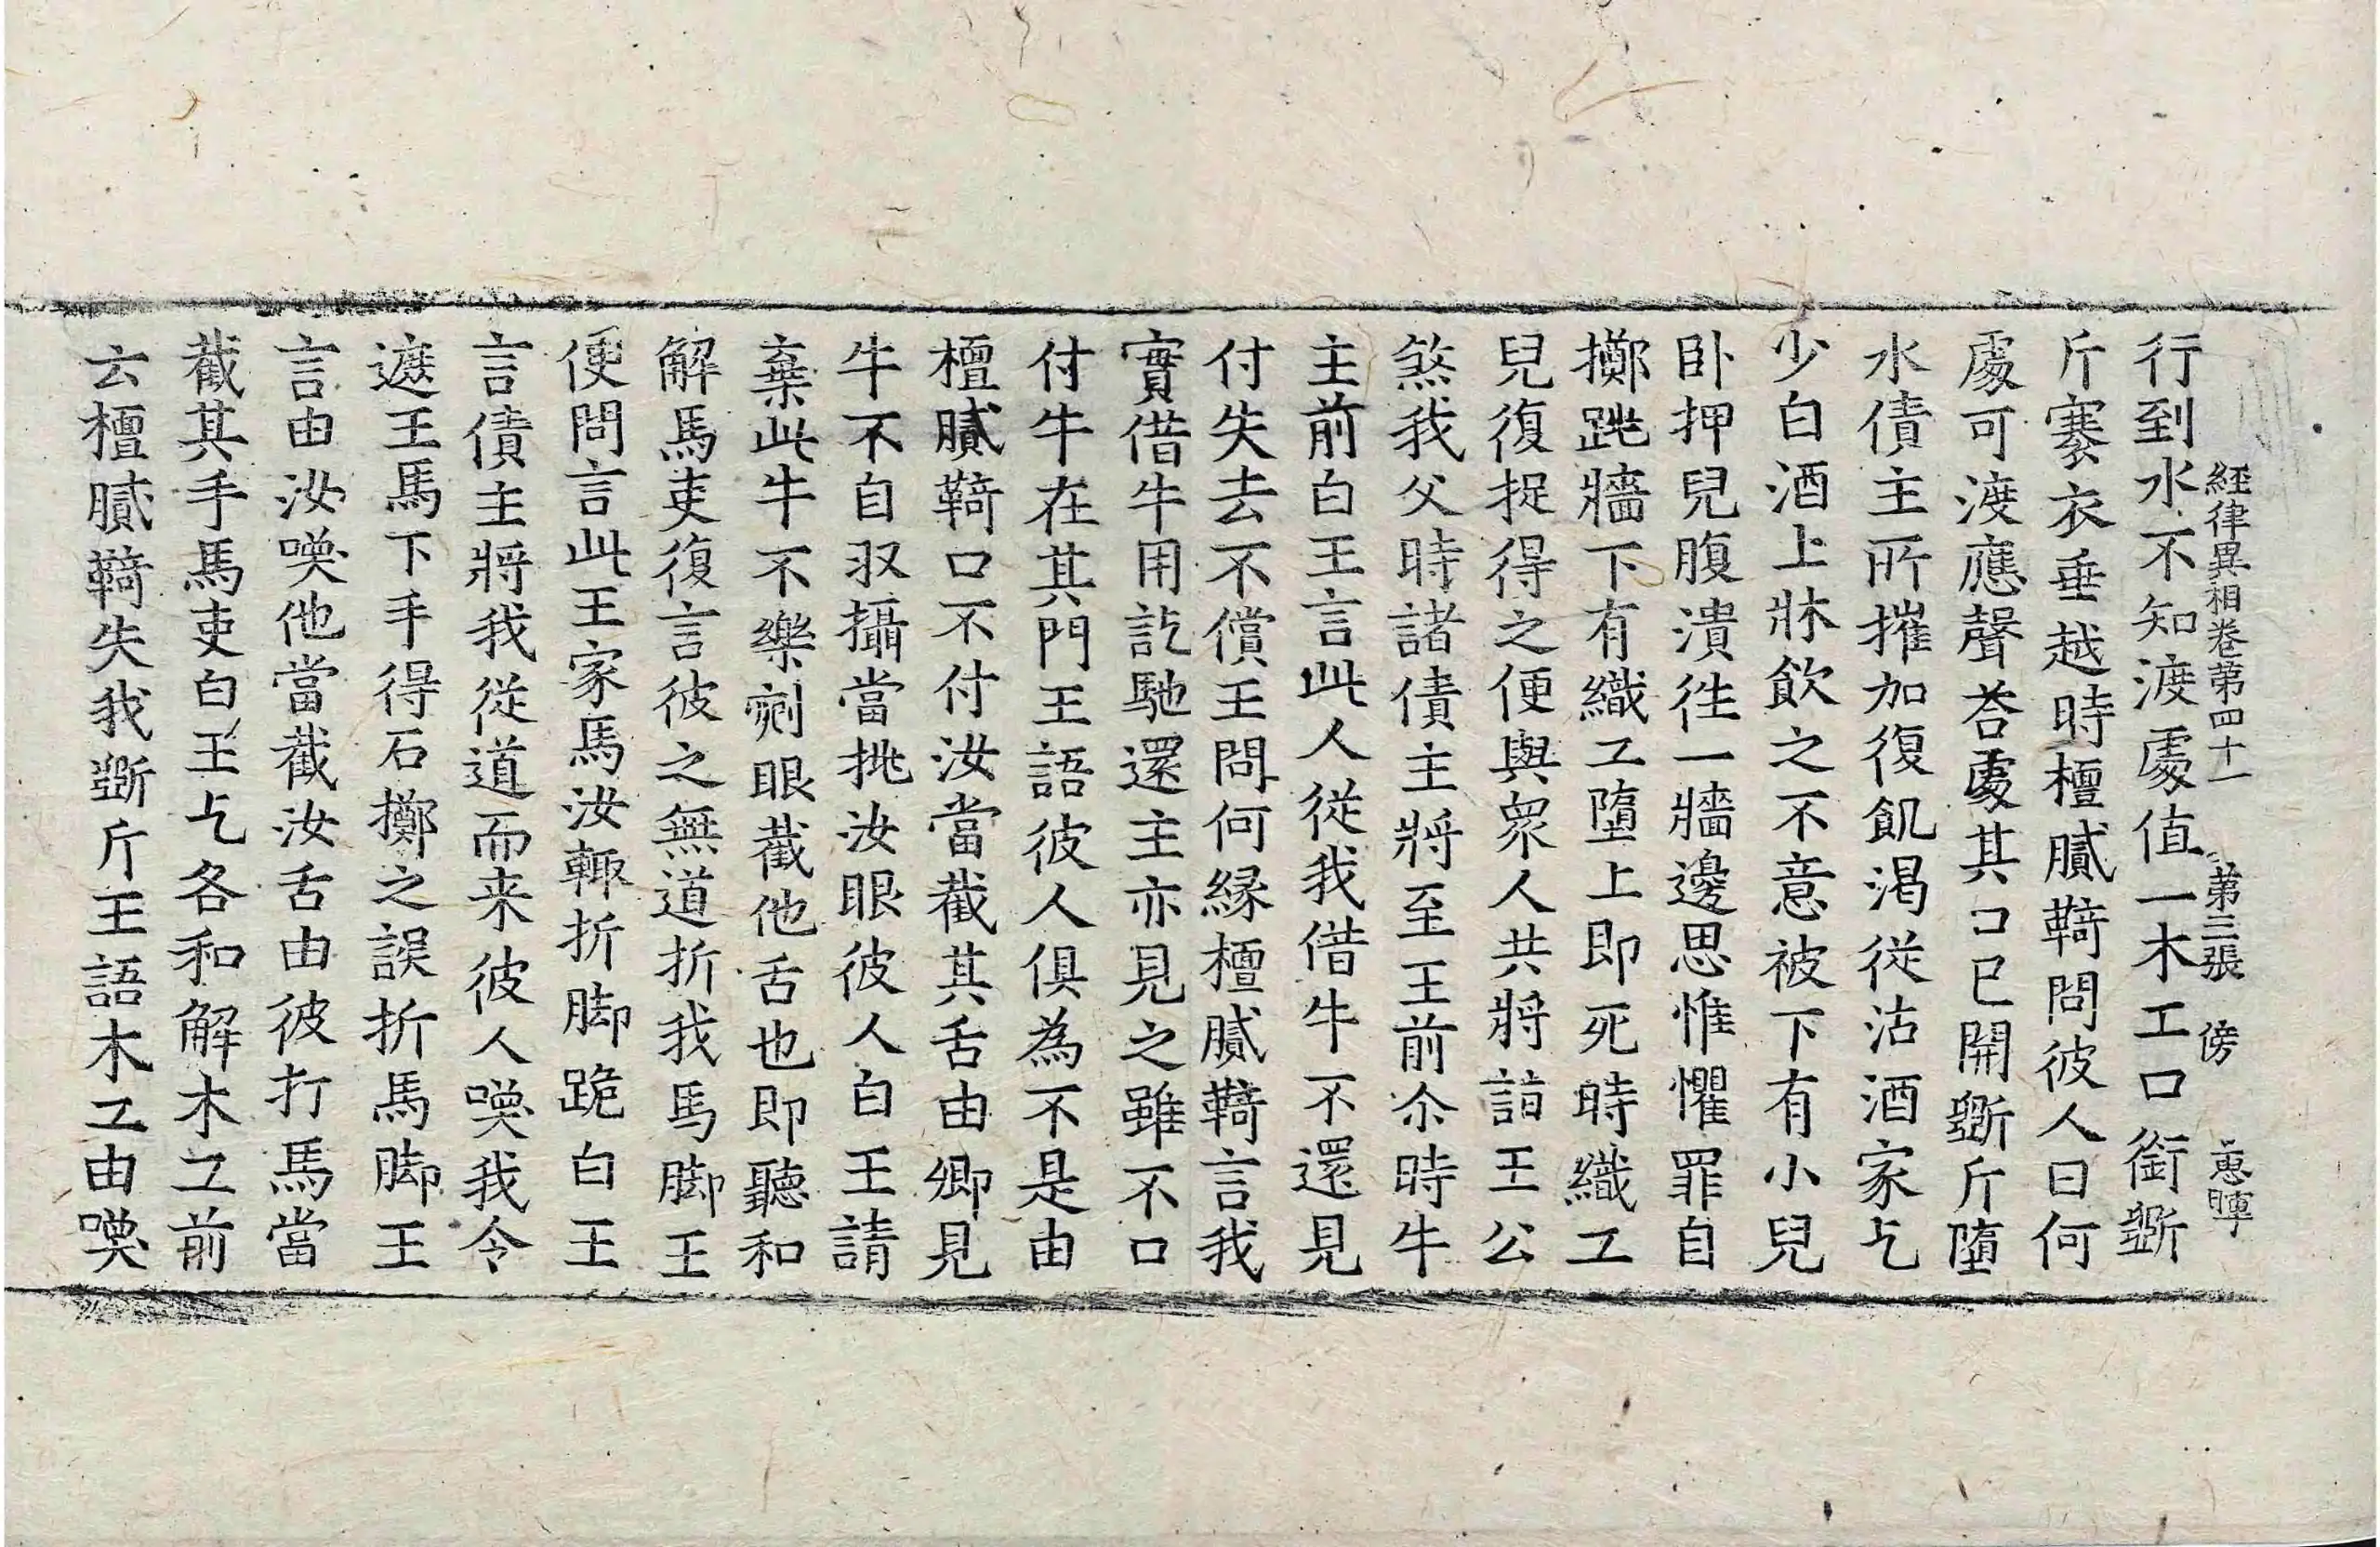 経律異相卷苐四十一 苐三張 傍 惠暉
行到水不知渡處值一木工口銜斲
斤褰衣垂越時檀膩䩭問彼人曰何
處可渡應聲荅處其口已開斲斤墮
水債主所摧加復飢渴從沽酒家乞
少白酒上牀飲之不意被下有小兒
卧押兒腹潰徃一牆邊思惟懼罪自
擲跳牆下有織工墮上即死時織工
兒復捉得之便與衆人共將詣王公
煞我父時諸債主將至王前尒時牛
主前白王言此人從我借牛不還見
付失去不償王問何縁檀膩䩭言我
實借牛用訖馳還主亦見之雖不口
付牛在其門王語彼人俱為不是由
檀膩䩭口不付汝當截其舌由卿見
牛不自収攝當挑汝眼彼人白王請
棄此牛不樂剜眼截他舌也即聽和
解馬吏復言彼之無道折我馬脚王
便問言此王家馬汝輙折脚跪白王
言債主將我從道而来彼人喚我令
遮王馬下手得石擲之誤折馬脚王
言由汝喚他當截汝舌由彼打馬當
截其手馬吏白王乞各和解木工前
云檀膩䩭失我斲斤王語木工由喚